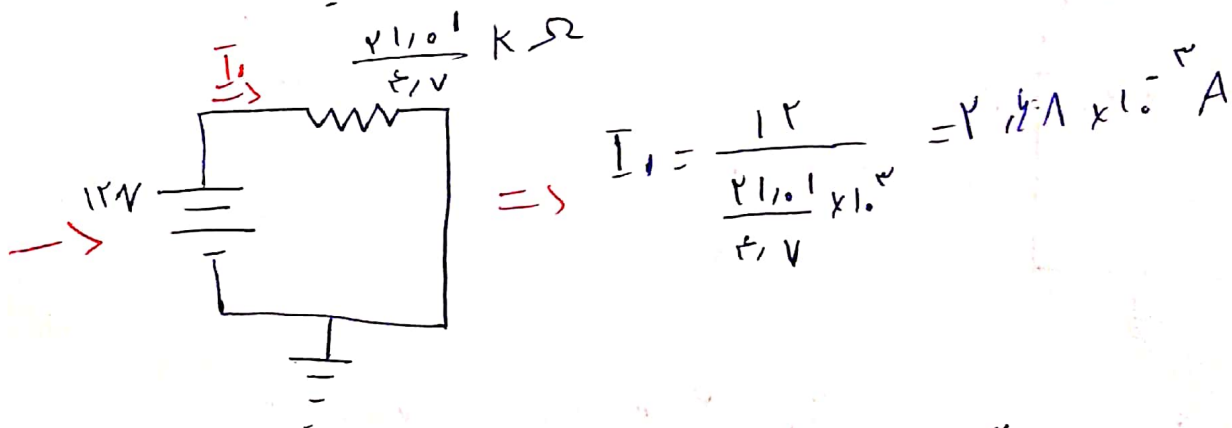 ۲۱٫۰۱/۴٫۷ K Ω
I₁ =>
۱۲V
->
=> I₁ = ۱۲ / (۲۱٫۰۱/۴٫۷ × ۱۰^۳) = ۲٫۶۸ × ۱۰^-۳ A